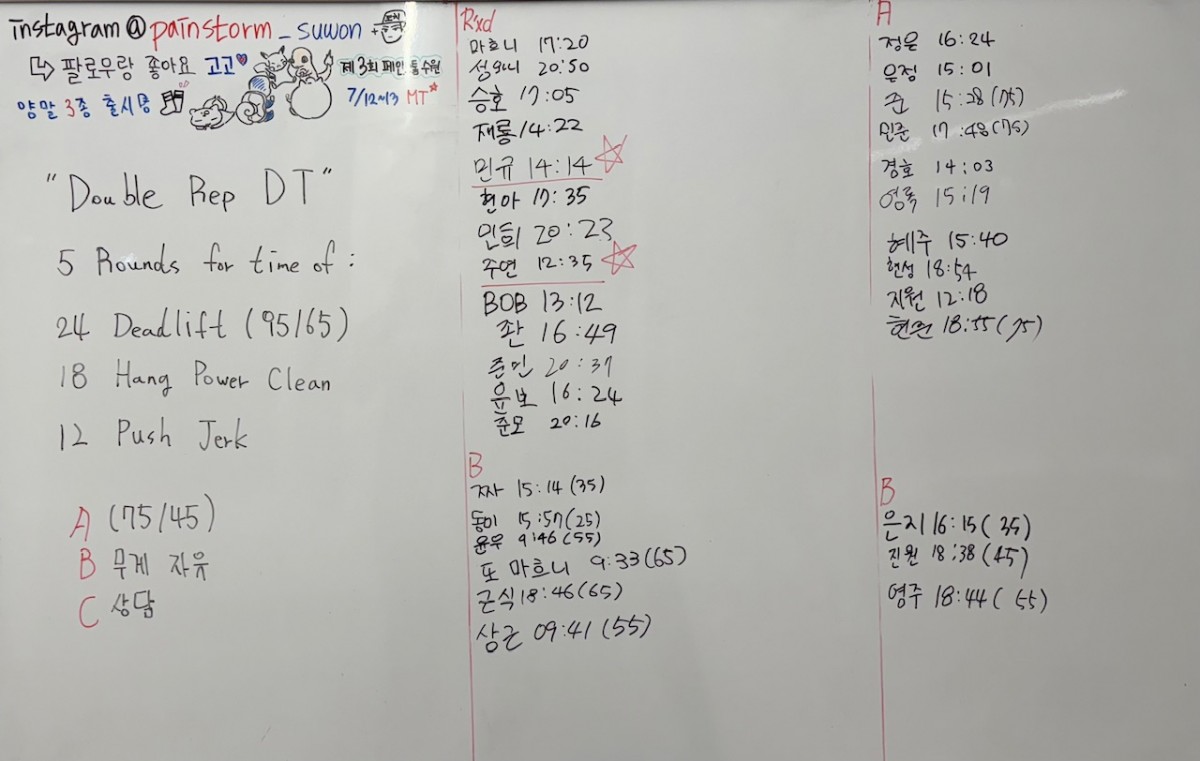 instagram@painstorm_suwon +
↳ 팔로우랑 좋아요 고고♥
양말 3종 출시중
제3회 페인통수원
7/12~13 MT☆
"Double Rep DT"
5 Rounds for time of :
24 Deadlift (95/65)
18 Hang Power Clean
12 Push Jerk
A (75/45)
B 무게 자유
C 상담
Rxd
마흐니 17:20
성외니 20:50
승호 17:05
재룡 14:22
민규 14:14 ☆
현아 17:35
민희 20:23
주연 12:35 ☆
BOB 13:12
좐 16:49
준민 20:37
윤보 16:24
준모 20:16
B
짜 15:14 (35)
동이 15:57 (25)
윤우 9:46 (55)
또 마흐니 9:33 (65)
근식 18:46 (65)
상근 09:41 (55)
A
정은 16:24
은정 15:01
준 15:28 (75)
민준 17:48 (75)
경호 14:03
영록 15:19
혜주 15:40
현성 18:54
지원 12:18
18:55 (75)
B
은지 16:15 (35)
진원 18:38 (45)
영주 18:44 (55)